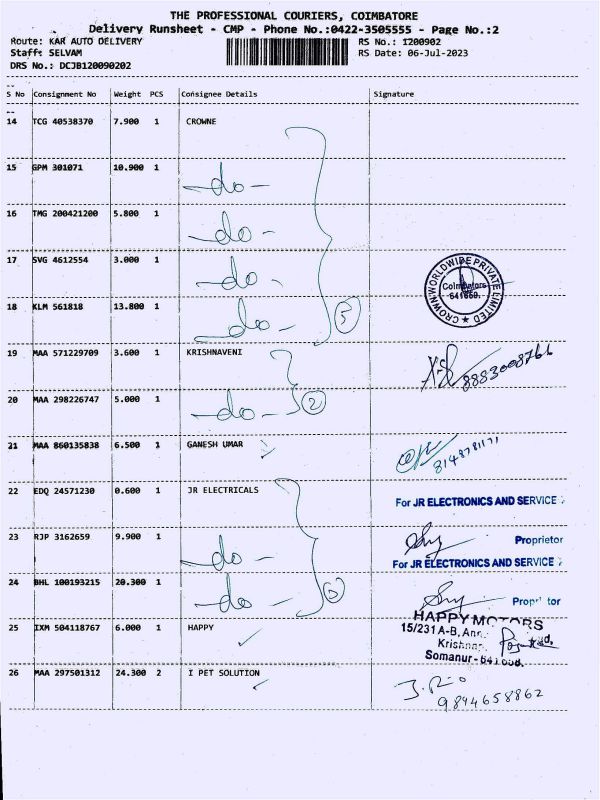 THE PROFESSIONAL COURIERS, COIMBATORE
Delivery Runsheet - CMP - Phone No.:0422-3505555 - Page No.:2
Route: KAR AUTO DELIVERY RS No.: 1200902
Staff: SELVAM RS Date: 06-Jul-2023
DRS No.: DCJB120090202
S No Consignment No Weight PCS Consignee Details Signature
14 TCG 40538370 7.900 1 CROWNE
15 GPM 301071 10.900 1 -do-
16 TMG 200421200 5.800 1 -do-
17 SVG 4612554 3.000 1 -do-
CROWN WORLDWIDE PRIVATE LIMITED
Coimbatore
18 KLM 561818 13.800 1 -do- 5
19 MAA 571229709 3.600 1 KRISHNAVENI
8883008766
20 MAA 298226747 5.000 1 -do- 2
21 MAA 860135838 6.500 1 GANESH UMAR
8148781171
22 EDQ 24571230 0.600 1 JR ELECTRICALS
For JR ELECTRONICS AND SERVICE
23 RJP 3162659 9.900 1 -do- Proprietor
For JR ELECTRONICS AND SERVICE
24 BHL 100193215 20.300 1 -do-
HAPPY MOTORS
25 IXM 504118767 6.000 1 HAPPY
15/231 A-B,
Somanur-
26 MAA 297501312 24.300 2 I PET SOLUTION
9894658862